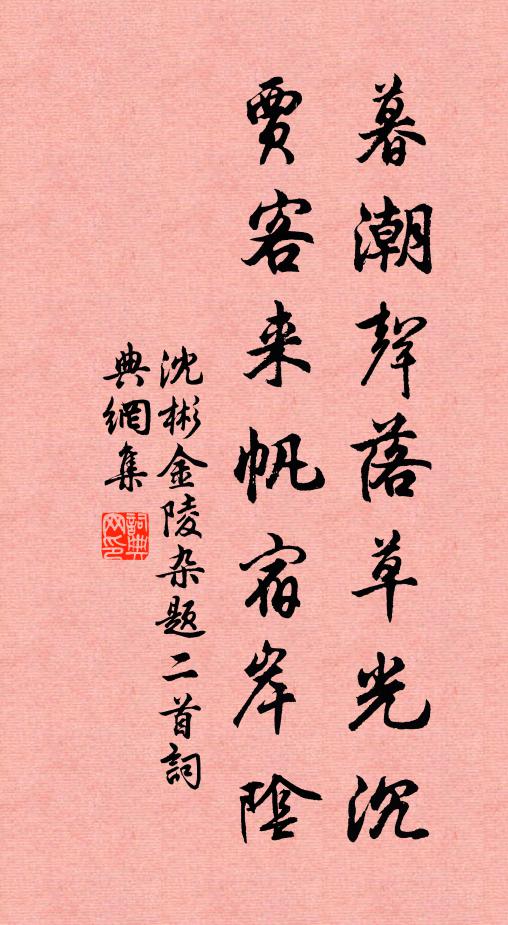 暮潮聲落草光沉
賈客来帆宿岸陰
沈彬金陵杂题二首詞
典網集
詞典
网印